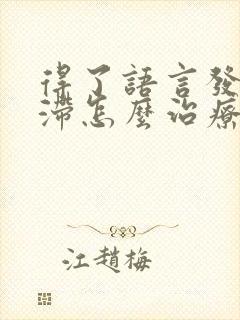 得了語言發
滯怎麼治療
江趙梅